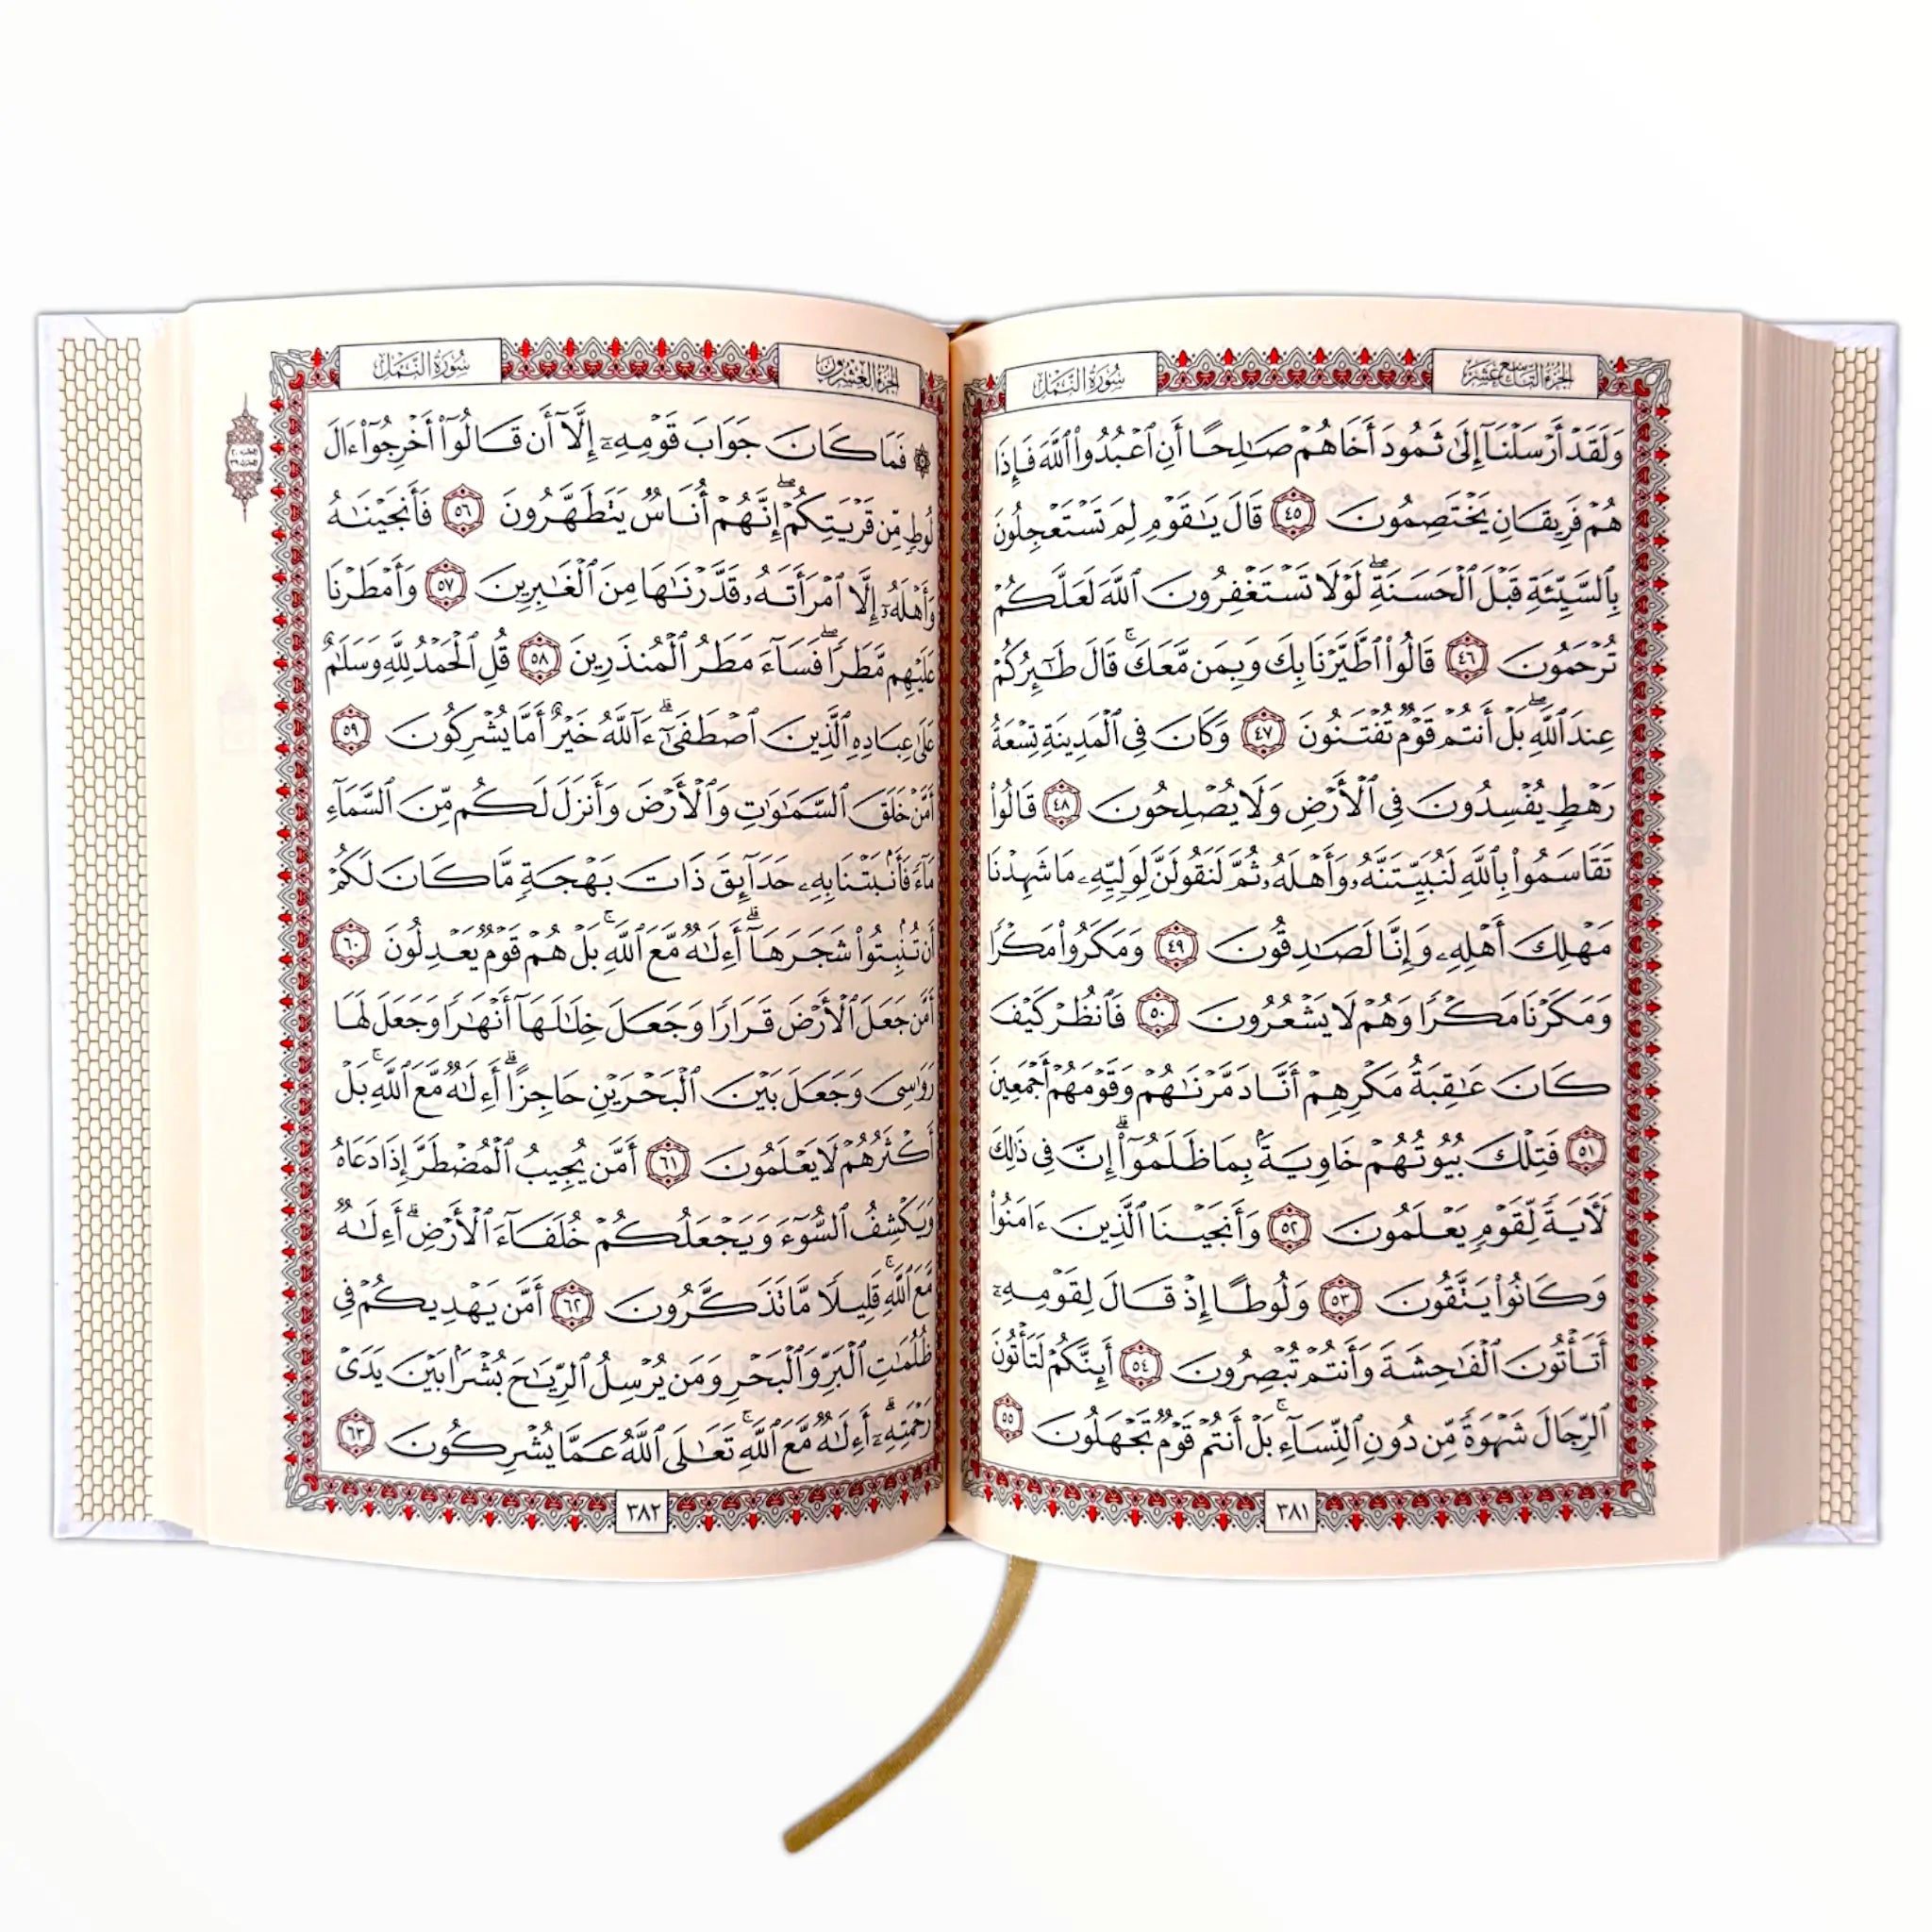 الجزء التاسع عشر
سورة النمل
وَلَقَدْ أَرْسَلْنَآ إِلَىٰ ثَمُودَ أَخَاهُمْ صَٰلِحًا أَنِ ٱعْبُدُوا۟ ٱللَّهَ فَإِذَا
هُمْ فَرِيقَانِ يَخْتَصِمُونَ ٤٥ قَالَ يَٰقَوْمِ لِمَ تَسْتَعْجِلُونَ
بِٱلسَّيِّئَةِ قَبْلَ ٱلْحَسَنَةِۖ لَوْلَا تَسْتَغْفِرُونَ ٱللَّهَ لَعَلَّكُمْ
تُرْحَمُونَ ٤٦ قَالُوا۟ ٱطَّيَّرْنَا بِكَ وَبِمَن مَّعَكَۚ قَالَ طَٰٓئِرُكُمْ
عِندَ ٱللَّهِۖ بَلْ أَنتُمْ قَوْمٌ تُفْتَنُونَ ٤٧ وَكَانَ فِى ٱلْمَدِينَةِ تِسْعَةُ
رَهْطٍ يُفْسِدُونَ فِى ٱلْأَرْضِ وَلَا يُصْلِحُونَ ٤٨ قَالُوا۟
تَقَاسَمُوا۟ بِٱللَّهِ لَنُبَيِّتَنَّهُۥ وَأَهْلَهُۥ ثُمَّ لَنَقُولَنَّ لِوَلِيِّهِۦ مَا شَهِدْنَا
مَهْلِكَ أَهْلِهِۦ وَإِنَّا لَصَٰدِقُونَ ٤٩ وَمَكَرُوا۟ مَكْرًا
وَمَكَرْنَا مَكْرًا وَهُمْ لَا يَشْعُرُونَ ٥٠ فَٱنظُرْ كَيْفَ
كَانَ عَٰقِبَةُ مَكْرِهِمْ أَنَّا دَمَّرْنَٰهُمْ وَقَوْمَهُمْ أَجْمَعِينَ
٥١ فَتِلْكَ بُيُوتُهُمْ خَاوِيَةًۢ بِمَا ظَلَمُوٓا۟ۗ إِنَّ فِى ذَٰلِكَ
لَءَايَةً لِّقَوْمٍ يَعْلَمُونَ ٥٢ وَأَنجَيْنَا ٱلَّذِينَ ءَامَنُوا۟
وَكَانُوا۟ يَتَّقُونَ ٥٣ وَلُوطًا إِذْ قَالَ لِقَوْمِهِۦٓ
أَتَأْتُونَ ٱلْفَٰحِشَةَ وَأَنتُمْ تُبْصِرُونَ ٥٤ أَئِنَّكُمْ لَتَأْتُونَ
ٱلرِّجَالَ شَهْوَةً مِّن دُونِ ٱلنِّسَآءِۚ بَلْ أَنتُمْ قَوْمٌ تَجْهَلُونَ ٥٥
٣٨١
الجزء العشرون
سورة النمل
۞ فَمَا كَانَ جَوَابَ قَوْمِهِۦٓ إِلَّآ أَن قَالُوٓا۟ أَخْرِجُوٓا۟ ءَالَ
لُوطٍ مِّن قَرْيَتِكُمْۖ إِنَّهُمْ أُنَاسٌ يَتَطَهَّرُونَ ٥٦ فَأَنجَيْنَٰهُ
وَأَهْلَهُۥٓ إِلَّا ٱمْرَأَتَهُۥ قَدَّرْنَٰهَا مِنَ ٱلْغَٰبِرِينَ ٥٧ وَأَمْطَرْنَا
عَلَيْهِم مَّطَرًاۖ فَسَآءَ مَطَرُ ٱلْمُنذَرِينَ ٥٨ قُلِ ٱلْحَمْدُ لِلَّهِ وَسَلَٰمٌ
عَلَىٰ عِبَادِهِ ٱلَّذِينَ ٱصْطَفَىٰٓۗ ءَآللَّهُ خَيْرٌ أَمَّا يُشْرِكُونَ ٥٩
أَمَّنْ خَلَقَ ٱلسَّمَٰوَٰتِ وَٱلْأَرْضَ وَأَنزَلَ لَكُم مِّنَ ٱلسَّمَآءِ
مَآءً فَأَنۢبَتْنَا بِهِۦ حَدَآئِقَ ذَاتَ بَهْجَةٍ مَّا كَانَ لَكُمْ
أَن تُنۢبِتُوا۟ شَجَرَهَآۗ أَءِلَٰهٌ مَّعَ ٱللَّهِۚ بَلْ هُمْ قَوْمٌ يَعْدِلُونَ ٦٠
أَمَّن جَعَلَ ٱلْأَرْضَ قَرَارًا وَجَعَلَ خِلَٰلَهَآ أَنْهَٰرًا وَجَعَلَ لَهَا
رَوَٰسِىَ وَجَعَلَ بَيْنَ ٱلْبَحْرَيْنِ حَاجِزًاۗ أَءِلَٰهٌ مَّعَ ٱللَّهِۚ بَلْ
أَكْثَرُهُمْ لَا يَعْلَمُونَ ٦١ أَمَّن يُجِيبُ ٱلْمُضْطَرَّ إِذَا دَعَاهُ
وَيَكْشِفُ ٱلسُّوٓءَ وَيَجْعَلُكُمْ خُلَفَآءَ ٱلْأَرْضِۗ أَءِلَٰهٌ
مَّعَ ٱللَّهِۚ قَلِيلًا مَّا تَذَكَّرُونَ ٦٢ أَمَّن يَهْدِيكُمْ فِى
ظُلُمَٰتِ ٱلْبَرِّ وَٱلْبَحْرِ وَمَن يُرْسِلُ ٱلرِّيَٰحَ بُشْرًۢا بَيْنَ يَدَىْ
رَحْمَتِهِۦٓۗ أَءِلَٰهٌ مَّعَ ٱللَّهِۚ تَعَٰلَى ٱللَّهُ عَمَّا يُشْرِكُونَ ٦٣
٣٨٢